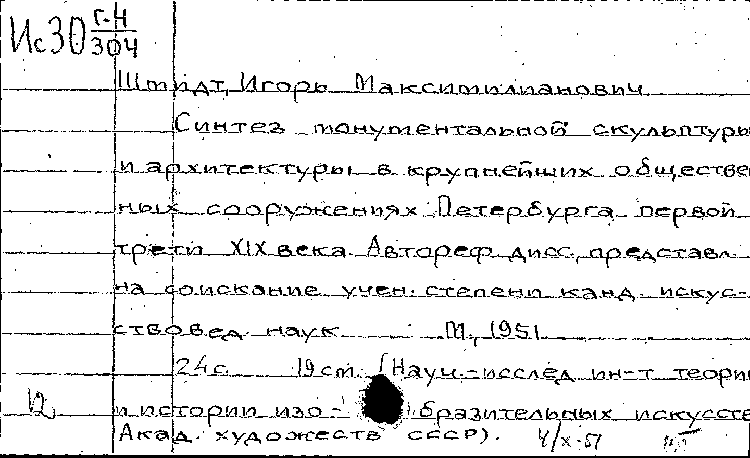 Ис30 Г-Н/304
Шмидт, Игорь Максимилианович
Синтез монументальной скульптуры
и архитектуры в крупнейших обществен
ных сооружениях Петербурга первой
трети XIX века. Автореф. дисс., представл.
на соискание учен. степени канд. искус-
ствовед. наук М., 1951
24 с. 19 см. (Науч.-исслед. ин-т теории
12 и истории изо- бразительных искусств
Акад. художеств СССР). 4/X-51